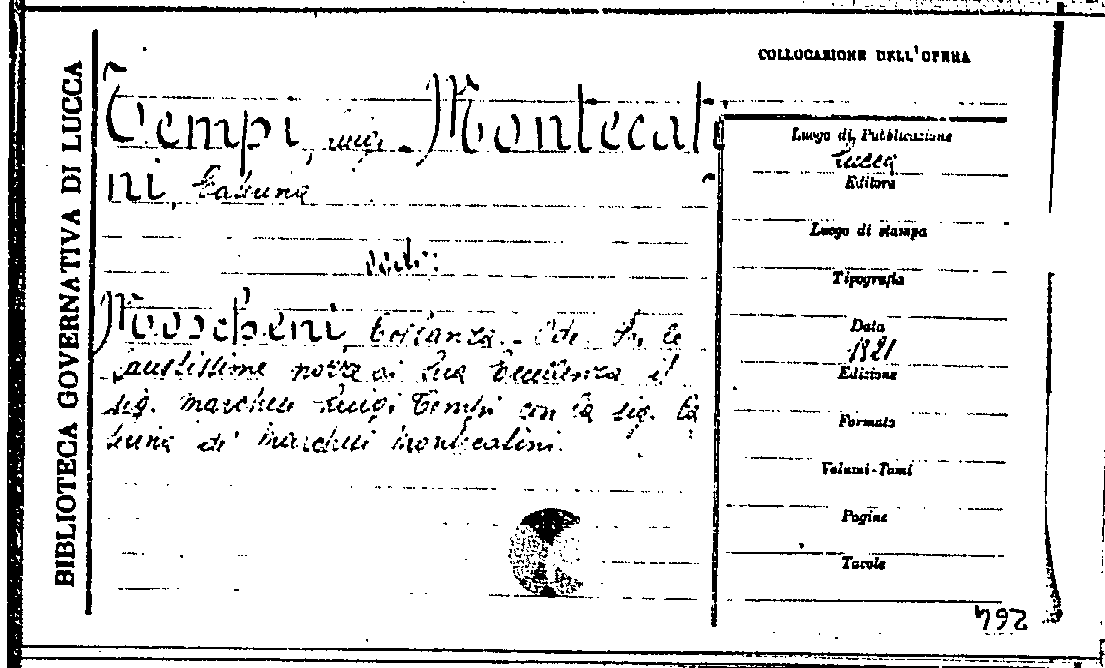 BIBLIOTECA GOVERNATIVA DI LUCCA
COLLOCAZIONE DELL'OPERA
Tempi, Luigi - Montecati
ni,
vedi:
Moscheni Costanza. Ode Per le
faustissime nozze di Sua Eccellenza il
sig. marchese Luigi Tempi con la sig.
de' marchesi Montecatini.
Luogo di Pubblicazione
Lucca
Editore
Luogo di stampa
Tipografia
Data
1821
Edizione
Formato
Volumi-Tomi
Pagine
Tavole
264